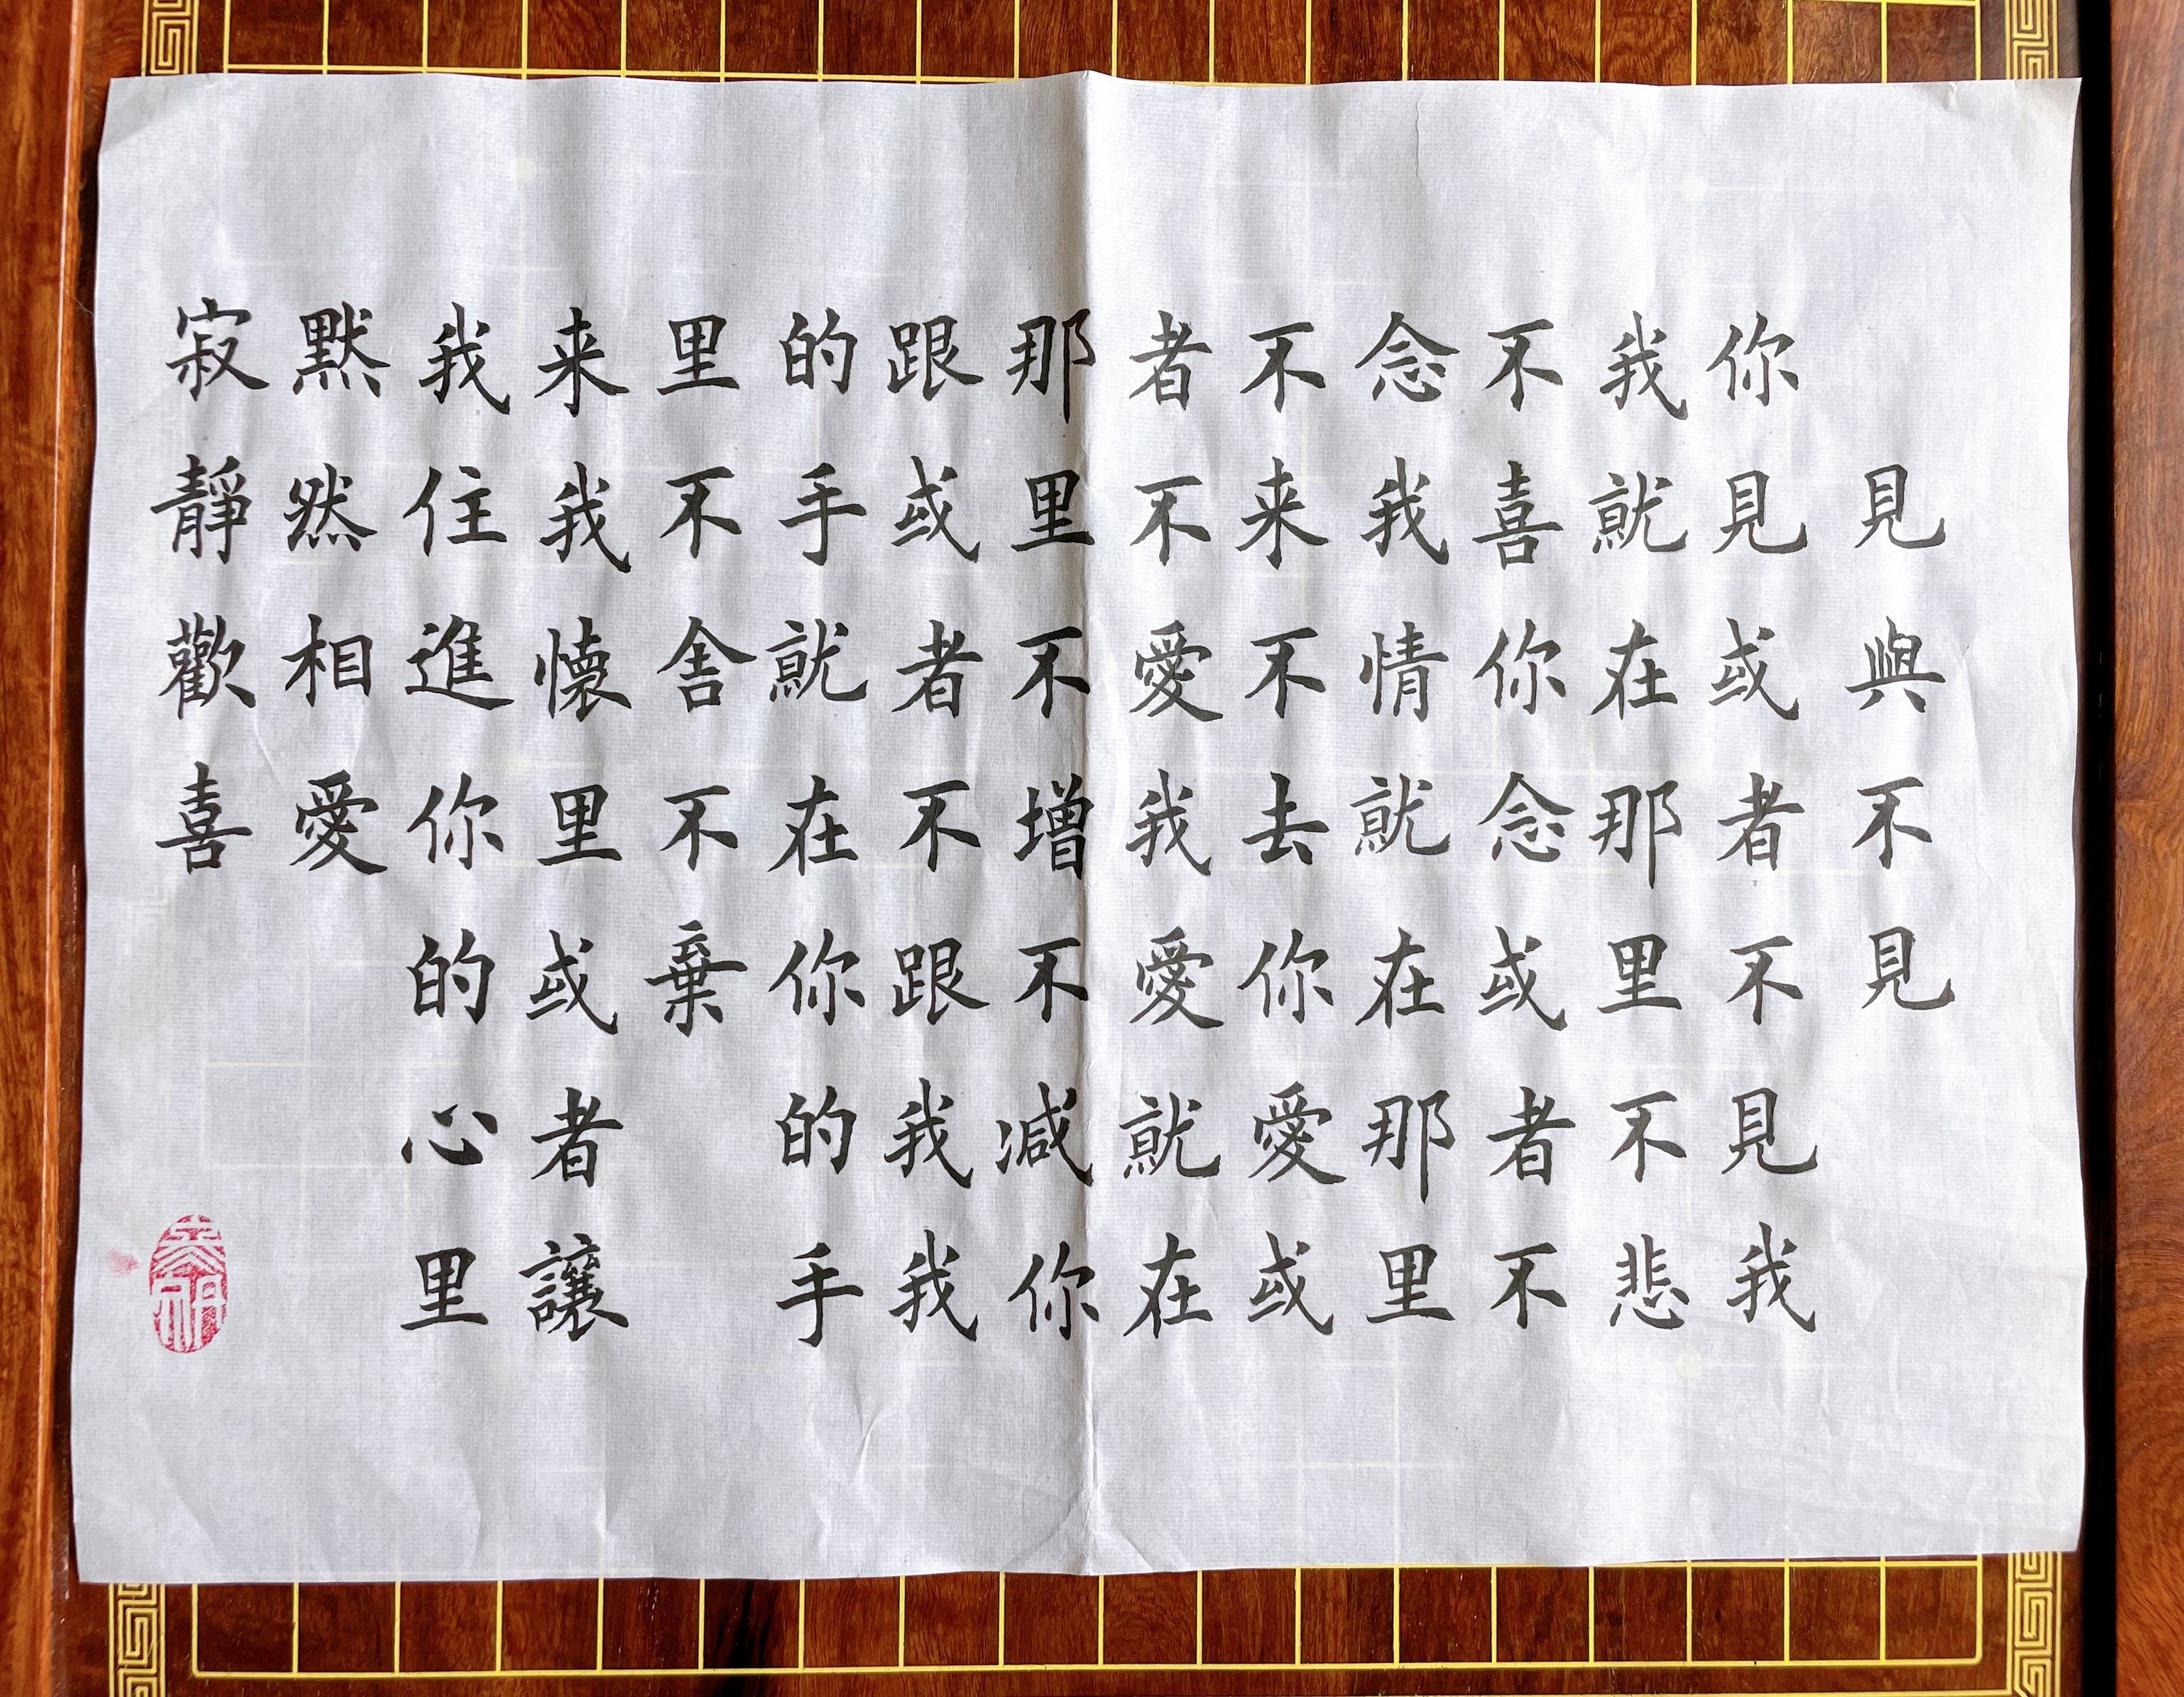 見與不見
你見或者不見我
我就在那里不悲
不喜你念或者不
念我情就在那里
不来不去你愛或
者不愛我愛就在
那里不增不減你
跟或者不跟我我
的手就在你的手
里不舍不棄
来我懐里或者讓
我住進你的心里
默然相愛
寂靜歡喜